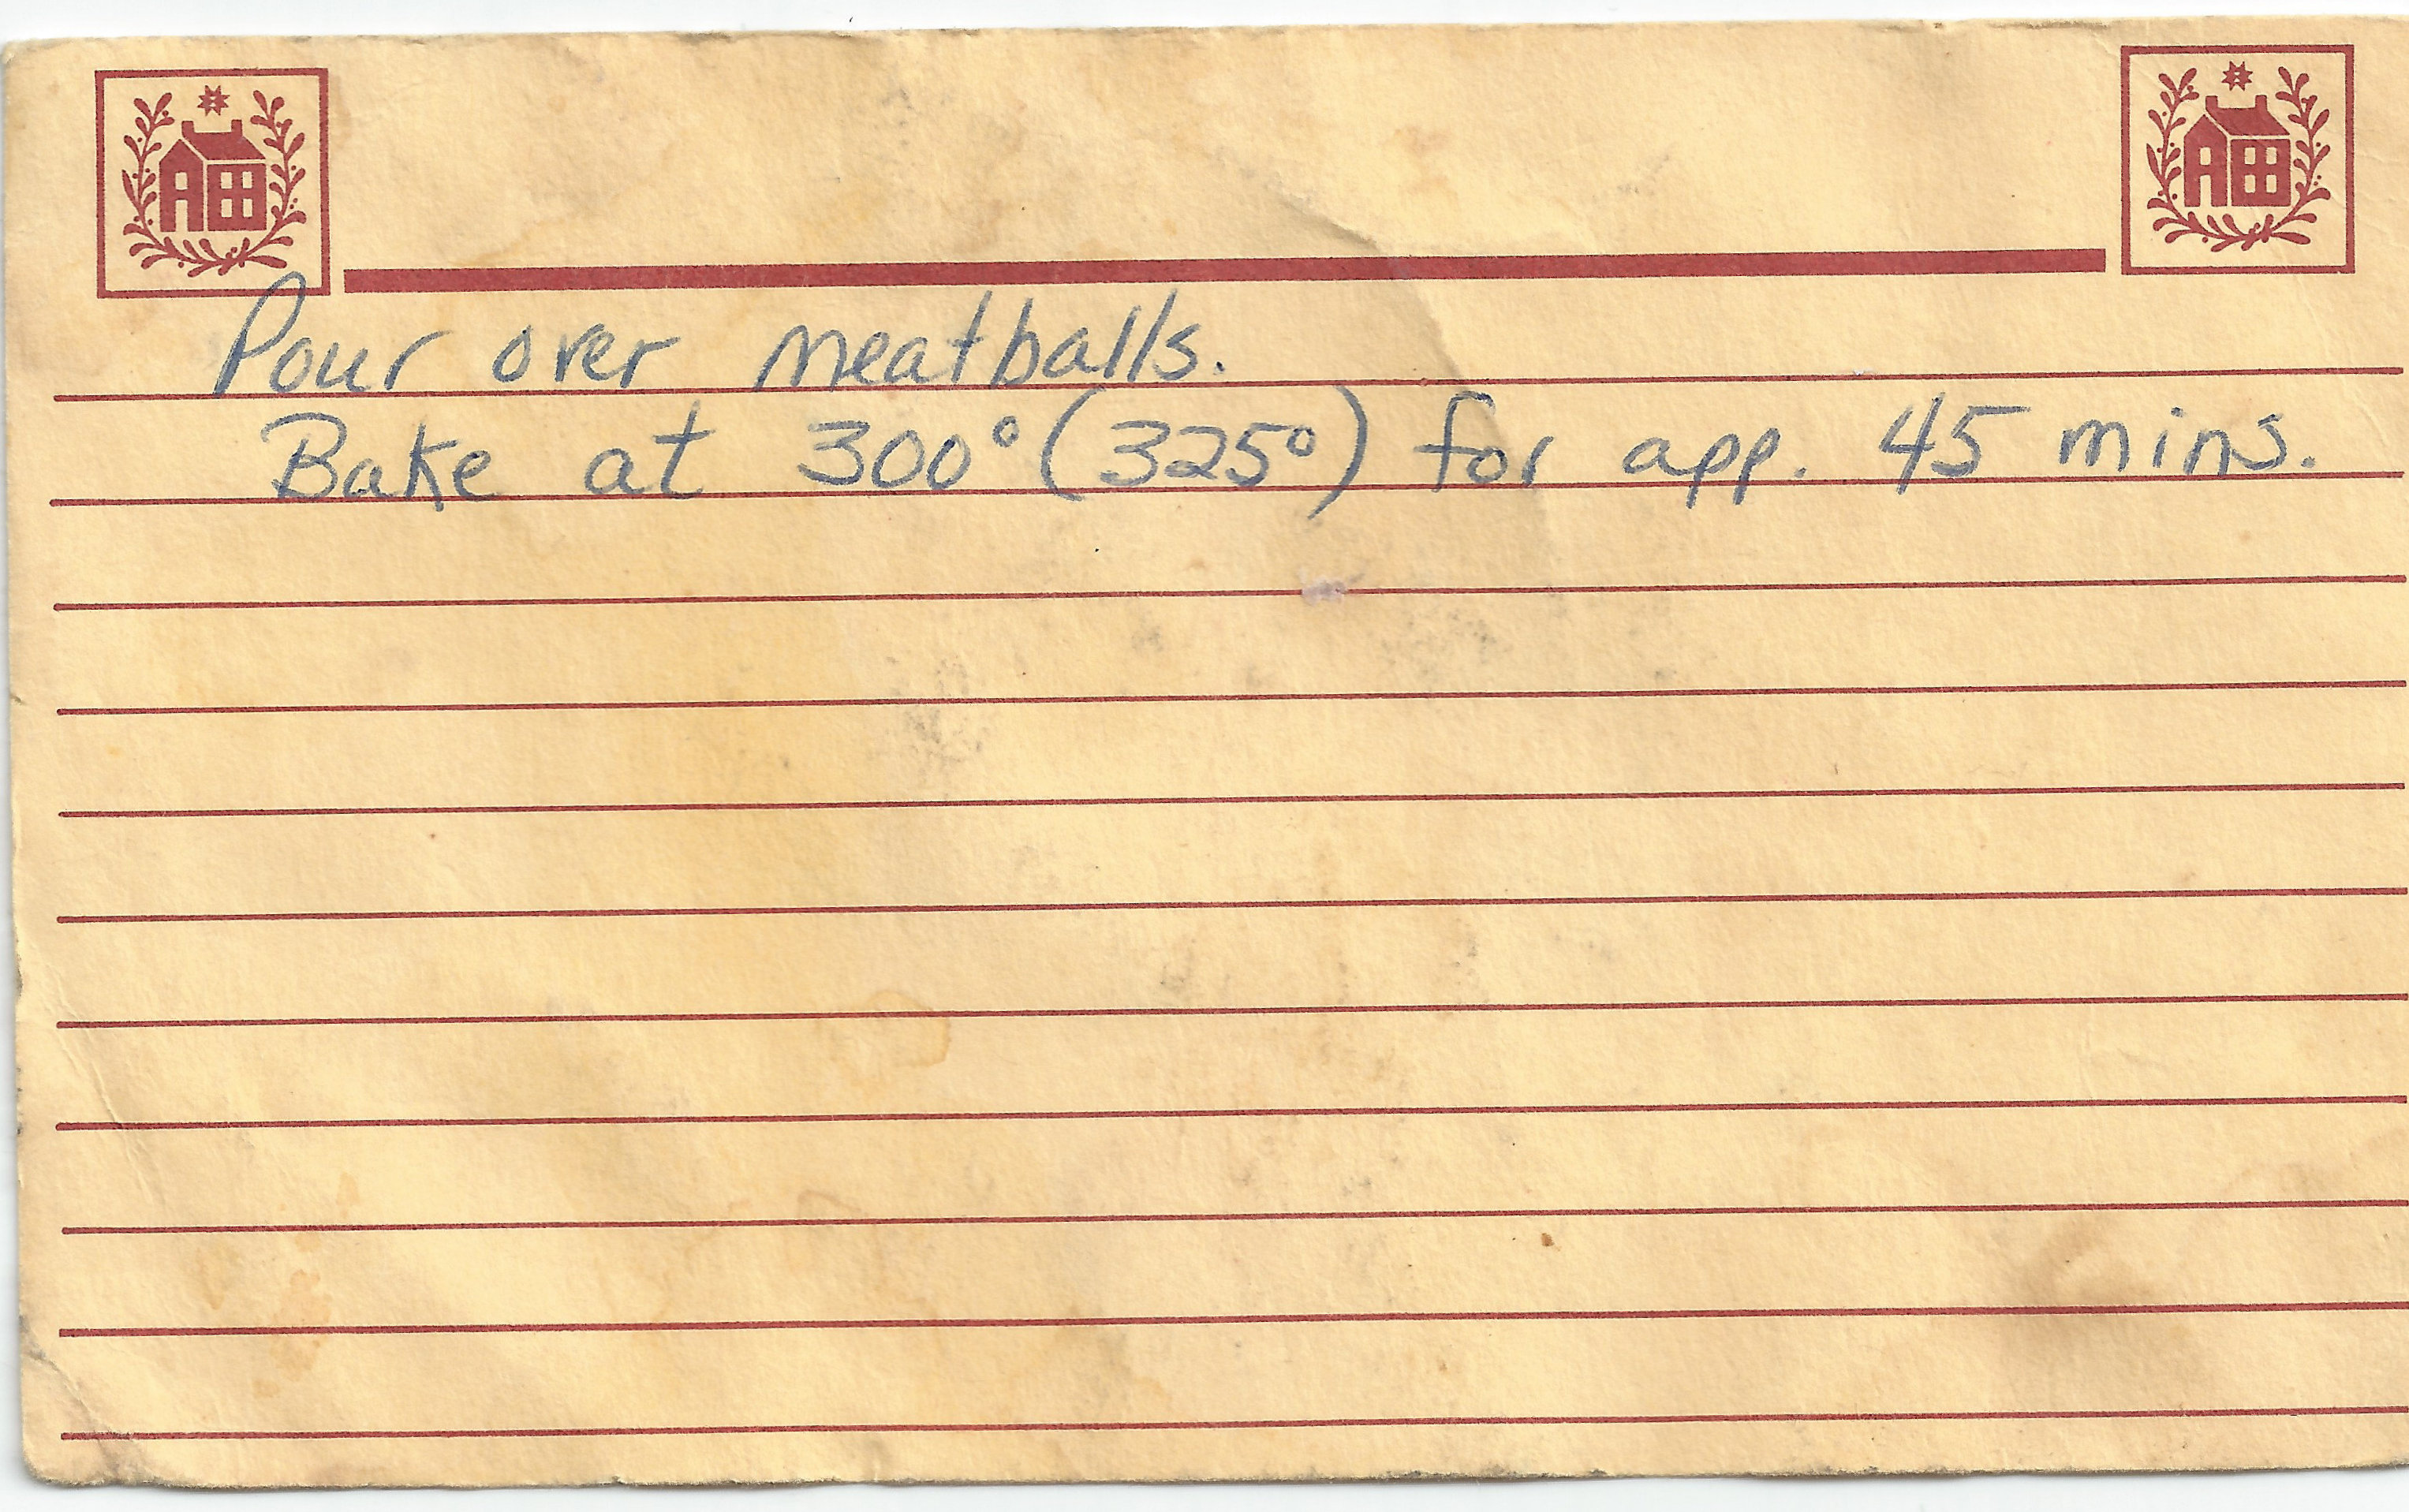 Pour over meatballs.
Bake at 300° (325°) for app. 45 mins.